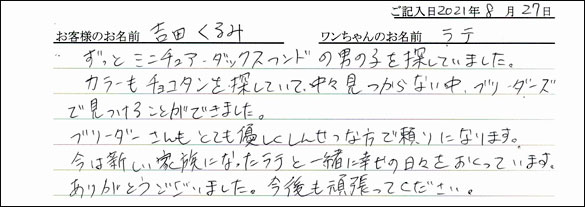 ご記入日2021年8月27日
お客様のお名前 吉田 くるみ ワンちゃんのお名前 ラテ
ずっとミニチュアーダックスフンドの男の子を探していました。
カラーもチョコタンを探していて、中々見つからない中、ブリーダーズ
で見つけることができました。
ブリーダーさんもとても優しくしんせつな方で頼りになります。
今は新しい家族になったラテと一緒に幸せの日々をおくっています。
ありがとうございました。今後も頑張ってください。